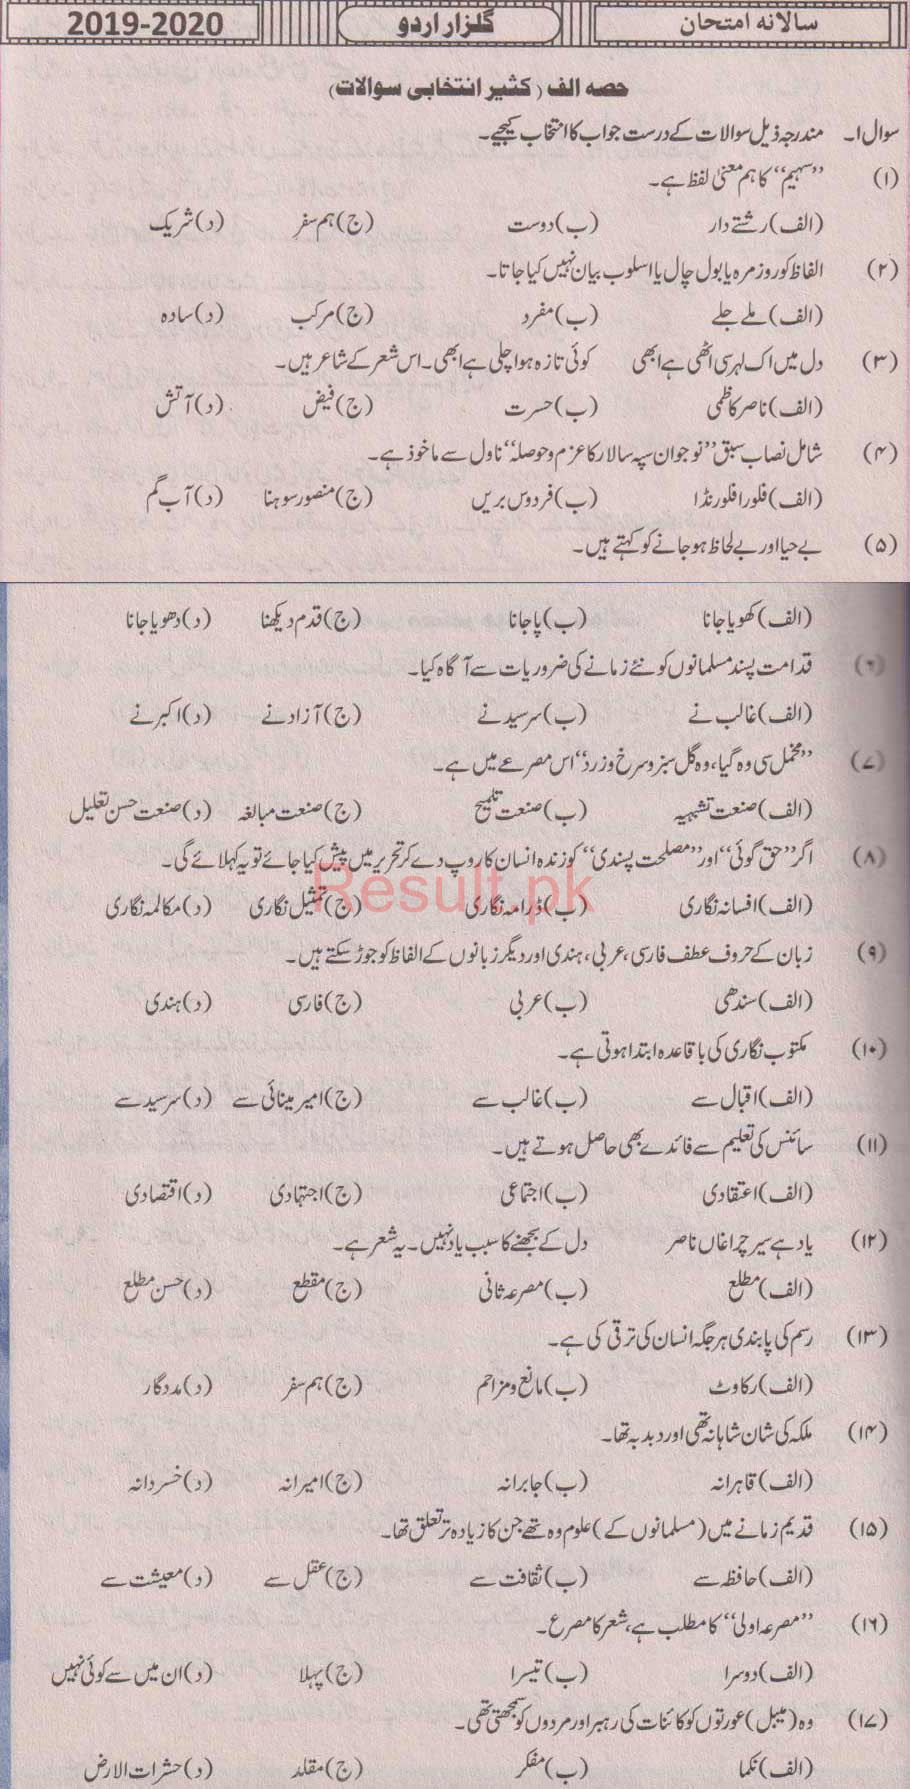 سالانہ امتحان گلزار اردو 2019-2020
حصہ الف (کثیر انتخابی سوالات)
سوال ۱۔ مندرجہ ذیل سوالات کے درست جواب کا انتخاب کیجیے۔
(۱) ”سہیم“ کا ہم معنیٰ لفظ ہے۔
(الف) رشتے دار (ب) دوست (ج) ہم سفر (د) شریک
(۲) الفاظ کو روز مرہ یا بول چال یا اسلوب بیان نہیں کیا جاتا۔
(الف) ملے جلے (ب) مفرد (ج) مرکب (د) سادہ
(۳) دل میں اک لہر سی اٹھی ہے ابھی کوئی تازہ ہوا چلی ہے ابھی۔ اس شعر کے شاعر ہیں۔
(الف) ناصر کاظمی (ب) حسرت (ج) فیض (د) آتش
(۴) شامل نصاب سبق ”نوجوان سپہ سالار کا عزم و حوصلہ“ ناول سے ماخوذ ہے۔
(الف) فلورا فلورنڈا (ب) فردوس بریں (ج) منصور سوہنا (د) آب گم
(۵) بے حیا اور بے لحاظ ہو جانے کو کہتے ہیں۔
(الف) کھویا جانا (ب) پا جانا (ج) قدم دیکھنا (د) دھویا جانا
(۶) قدامت پسند مسلمانوں کو نئے زمانے کی ضروریات سے آگاہ کیا۔
(الف) غالب نے (ب) سرسید نے (ج) آزاد نے (د) اکبر نے
(۷) ”مخمل سی وہ گیا، وہ گل سبز و سرخ و زرد“ اس مصرعے میں ہے۔
(الف) صنعت تشبیہ (ب) صنعت تلمیح (ج) صنعت مبالغہ (د) صنعت حسن تعلیل
(۸) اگر ”حق گوئی“ اور ”مصلحت پسندی“ کو زندہ انسان کا روپ دے کر تحریر میں پیش کیا جائے تو یہ کہلائے گی۔
Result.pk
(الف) افسانہ نگاری (ب) ڈرامہ نگاری (ج) تمثیل نگاری (د) مکالمہ نگاری
(۹) زبان کے حروف عطف فارسی، عربی، ہندی اور دیگر زبانوں کے الفاظ کو جوڑ سکتے ہیں۔
(الف) سندھی (ب) عربی (ج) فارسی (د) ہندی
(۱۰) مکتوب نگاری کی باقاعدہ ابتدا ہوتی ہے۔
(الف) اقبال سے (ب) غالب سے (ج) امیر مینائی سے (د) سرسید سے
(۱۱) سائنس کی تعلیم سے فائدے بھی حاصل ہوتے ہیں۔
(الف) اعتقادی (ب) اجتماعی (ج) اجتہادی (د) اقتصادی
(۱۲) یاد ہے سیر چراغاں ناصر دل کے بجھنے کا سبب یاد نہیں۔ یہ شعر ہے۔
(الف) مطلع (ب) مصرعہ ثانی (ج) مقطع (د) حسن مطلع
(۱۳) رسم کی پابندی ہر جگہ انسان کی ترقی کی ہے۔
(الف) رکاوٹ (ب) مانع و مزاحم (ج) ہم سفر (د) مددگار
(۱۴) ملکہ کی شان شاہانہ تھی اور دبدبہ تھا۔
(الف) قاہرانہ (ب) جابرانہ (ج) امیرانہ (د) خسردانہ
(۱۵) قدیم زمانے میں (مسلمانوں کے) علوم وہ تھے جن کا زیادہ تر تعلق تھا۔
(الف) حافظہ سے (ب) ثقافت سے (ج) عقل سے (د) معیشت سے
(۱۶) ”مصرعہ اولی“ کا مطلب ہے، شعر کا مصرع۔
(الف) دوسرا (ب) تیسرا (ج) پہلا (د) ان میں سے کوئی نہیں
(۱۷) وہ (میبل) عورتوں کو کائنات کی رہبر اور مردوں کو سمجھتی تھی۔
(الف) نکما (ب) مفکر (ج) مقلد (د) حشرات الارض